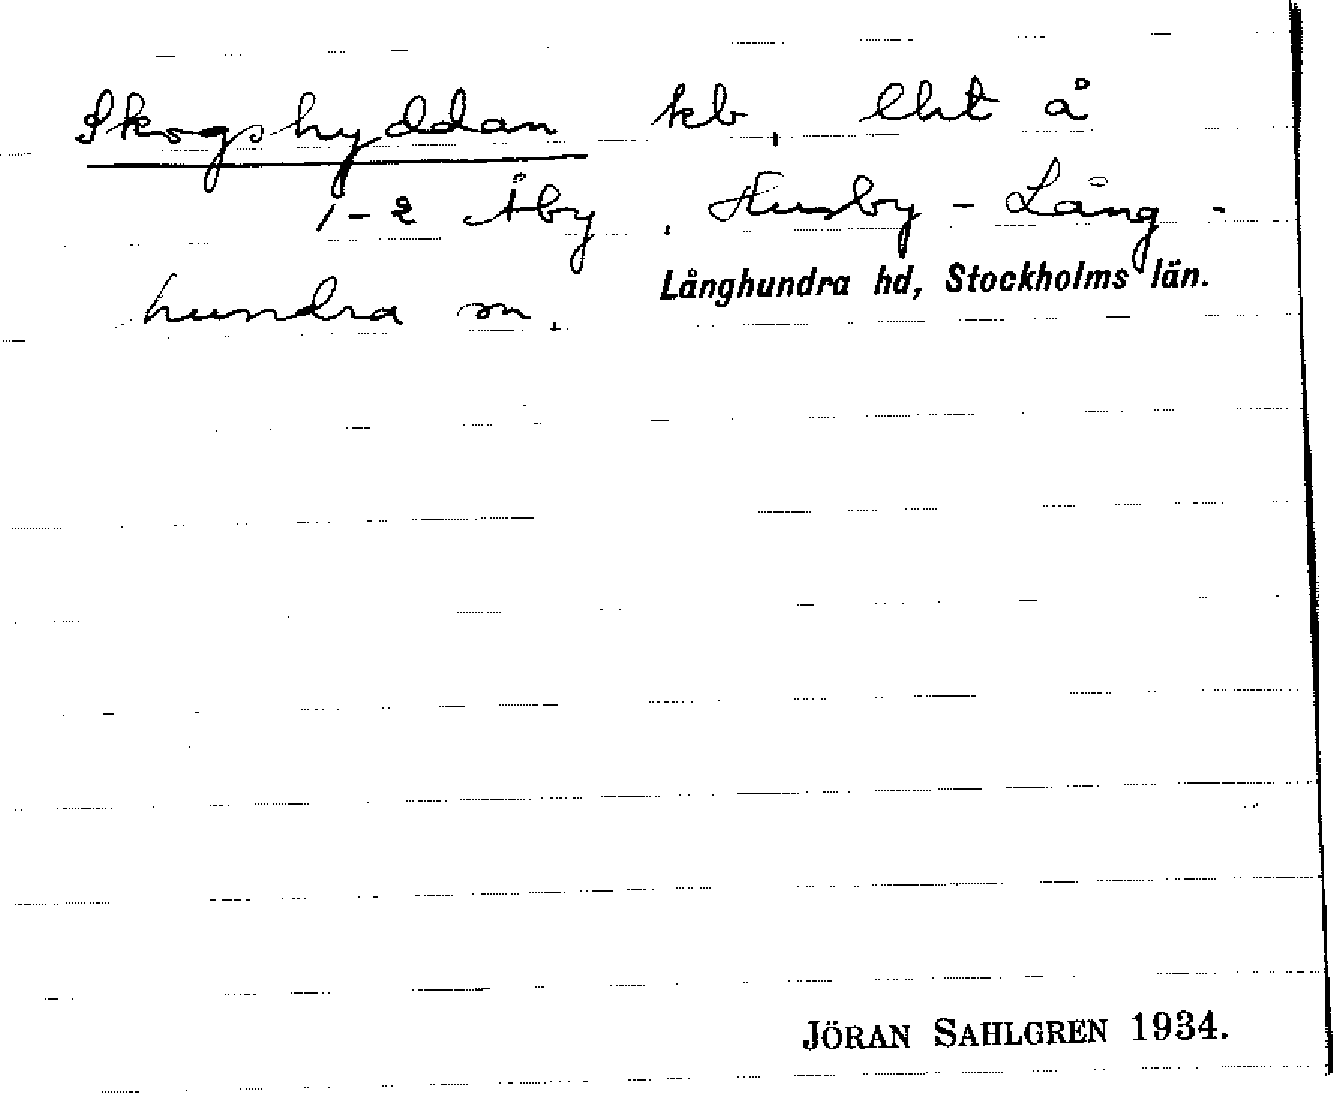 Skogshyddan kb, lht å
1-2 Åby, Husby-Lång-
hundra sn.
Långhundra hd, Stockholms län.
JÖRAN SAHLGREN 1934.